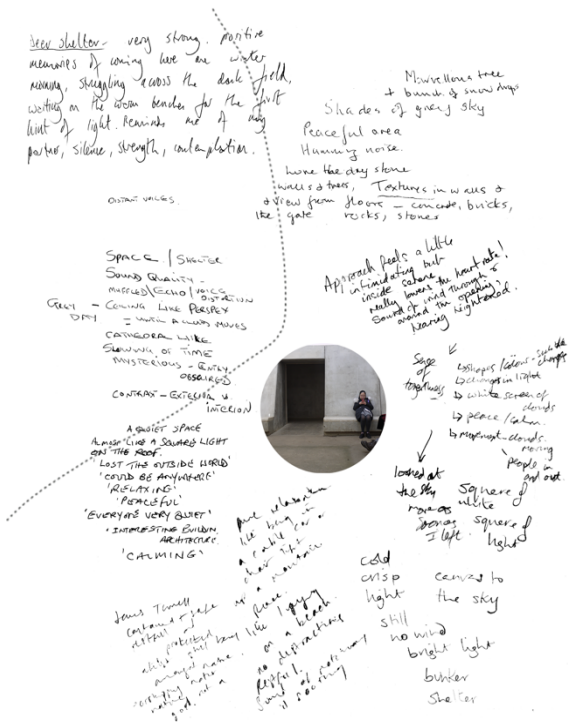 Deer shelter - very strong. positive
memories of coming here one winter
morning, struggling across the dark field,
waiting on the worn benches for the first
hint of light. Reminds me of my
partner, silence, strength, contemplation.
Marvellous tree
+ bunch of snowdrops
Shades of grey sky
Peaceful area
Humming noise.
Love the day stone
walls & trees, Textures in walls &
view from floors - concrete, bricks,
the gate rocks, stones
DISTANT VOICES.
SPACE / SHELTER
SOUND QUALITY.
MUFFLED/ECHO/VOICE
DISTORTION
GREY - CEILING LIKE PERSPEX
DAY = UNTIL A CLOUD MOVES
CATHEDRAL LIKE
SLOWING OF TIME
MYSTERIOUS - ENTRY
OBSCURED
CONTRAST - EXTERIOR V
INTERIOR
A QUIET SPACE
ALMOST LIKE A SQUARE LIGHT
ON THE ROOF.
'LOST THE OUTSIDE WORLD'
'COULD BE ANYWHERE'
'RELAXING'
'PEACEFUL'
'EVERYONE VERY QUIET'
• INTERESTING BUILDING
ARCHITECTURE.
'CALMING'
Approach feels a little
intimidating but
inside serene
really lowers the heart rate!
Sound of wind through &
around the opening,
hearing heightened.
Sense
of
togetherness
shapes/colours - subtle
changes
changes in light
white screen of
clouds
peace/calm.
movement - clouds.
moving
people in
and out.
looked at
the sky
more as
soon as
I left.
Square of
white
Square of
light
cold
crisp
light
canvas to
the sky
still
no wind
bright light
bunker
shelter
pure relaxation
like being in
a cable car /
chair lift
up a mountain
peace.
like laying
on a beach.
no distractions
restful.
sound of motorway
is soothing
James Turrell
contained & safe
restful
protected
whilst still being
amongst nature.
worshipping nature